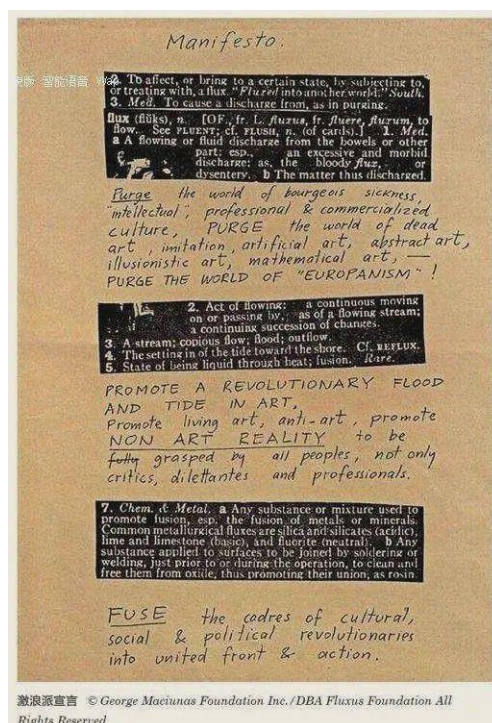 Manifesto.
2. To affect, or bring to a certain state, by subjecting to,
or treating with, a flux. "Fluxed into another world." South.
3. Med. To cause a discharge from, as in purging.
flux (flŭks), n. [OF., fr. L. fluxus, fr. fluere, fluxum, to
flow. See FLUENT; cf. FLUSH, n. (of cards).] 1. Med.
a A flowing or fluid discharge from the bowels or other
part: esp., an excessive and morbid
discharge; as, the bloody flux, or
dysentery. b The matter thus discharged.
Purge the world of bourgeois sickness,
"intellectual", professional & commercialized
culture, PURGE the world of dead
art, imitation, artificial art, abstract art,
illusionistic art, mathematical art, —
PURGE THE WORLD OF "EUROPANISM"!
2. Act of flowing: a continuous moving
on or passing by, as of a flowing stream;
a continuing succession of changes.
3. A stream; copious flow; flood; outflow.
4. The setting in of the tide toward the shore. Cf. REFLUX.
5. State of being liquid through heat; fusion. Rare.
PROMOTE A REVOLUTIONARY FLOOD
AND TIDE IN ART,
Promote living art, anti-art, promote
NON ART REALITY to be
fully grasped by all peoples, not only
critics, dilettantes and professionals.
7. Chem. & Metal. a Any substance or mixture used to
promote fusion, esp. the fusion of metals or minerals.
Common metallurgical fluxes are silica and silicates (acidic),
lime and limestone (basic), and fluorite (neutral). b Any
substance applied to surfaces to be joined by soldering or
welding, just prior to or during the operation, to clean and
free them from oxide, thus promoting their union, as rosin.
FUSE the cadres of cultural,
social & political revolutionaries
into united front & action.
激浪派宣言 © George Maciunas Foundation Inc./DBA Fluxus Foundation All
Rights Reserved